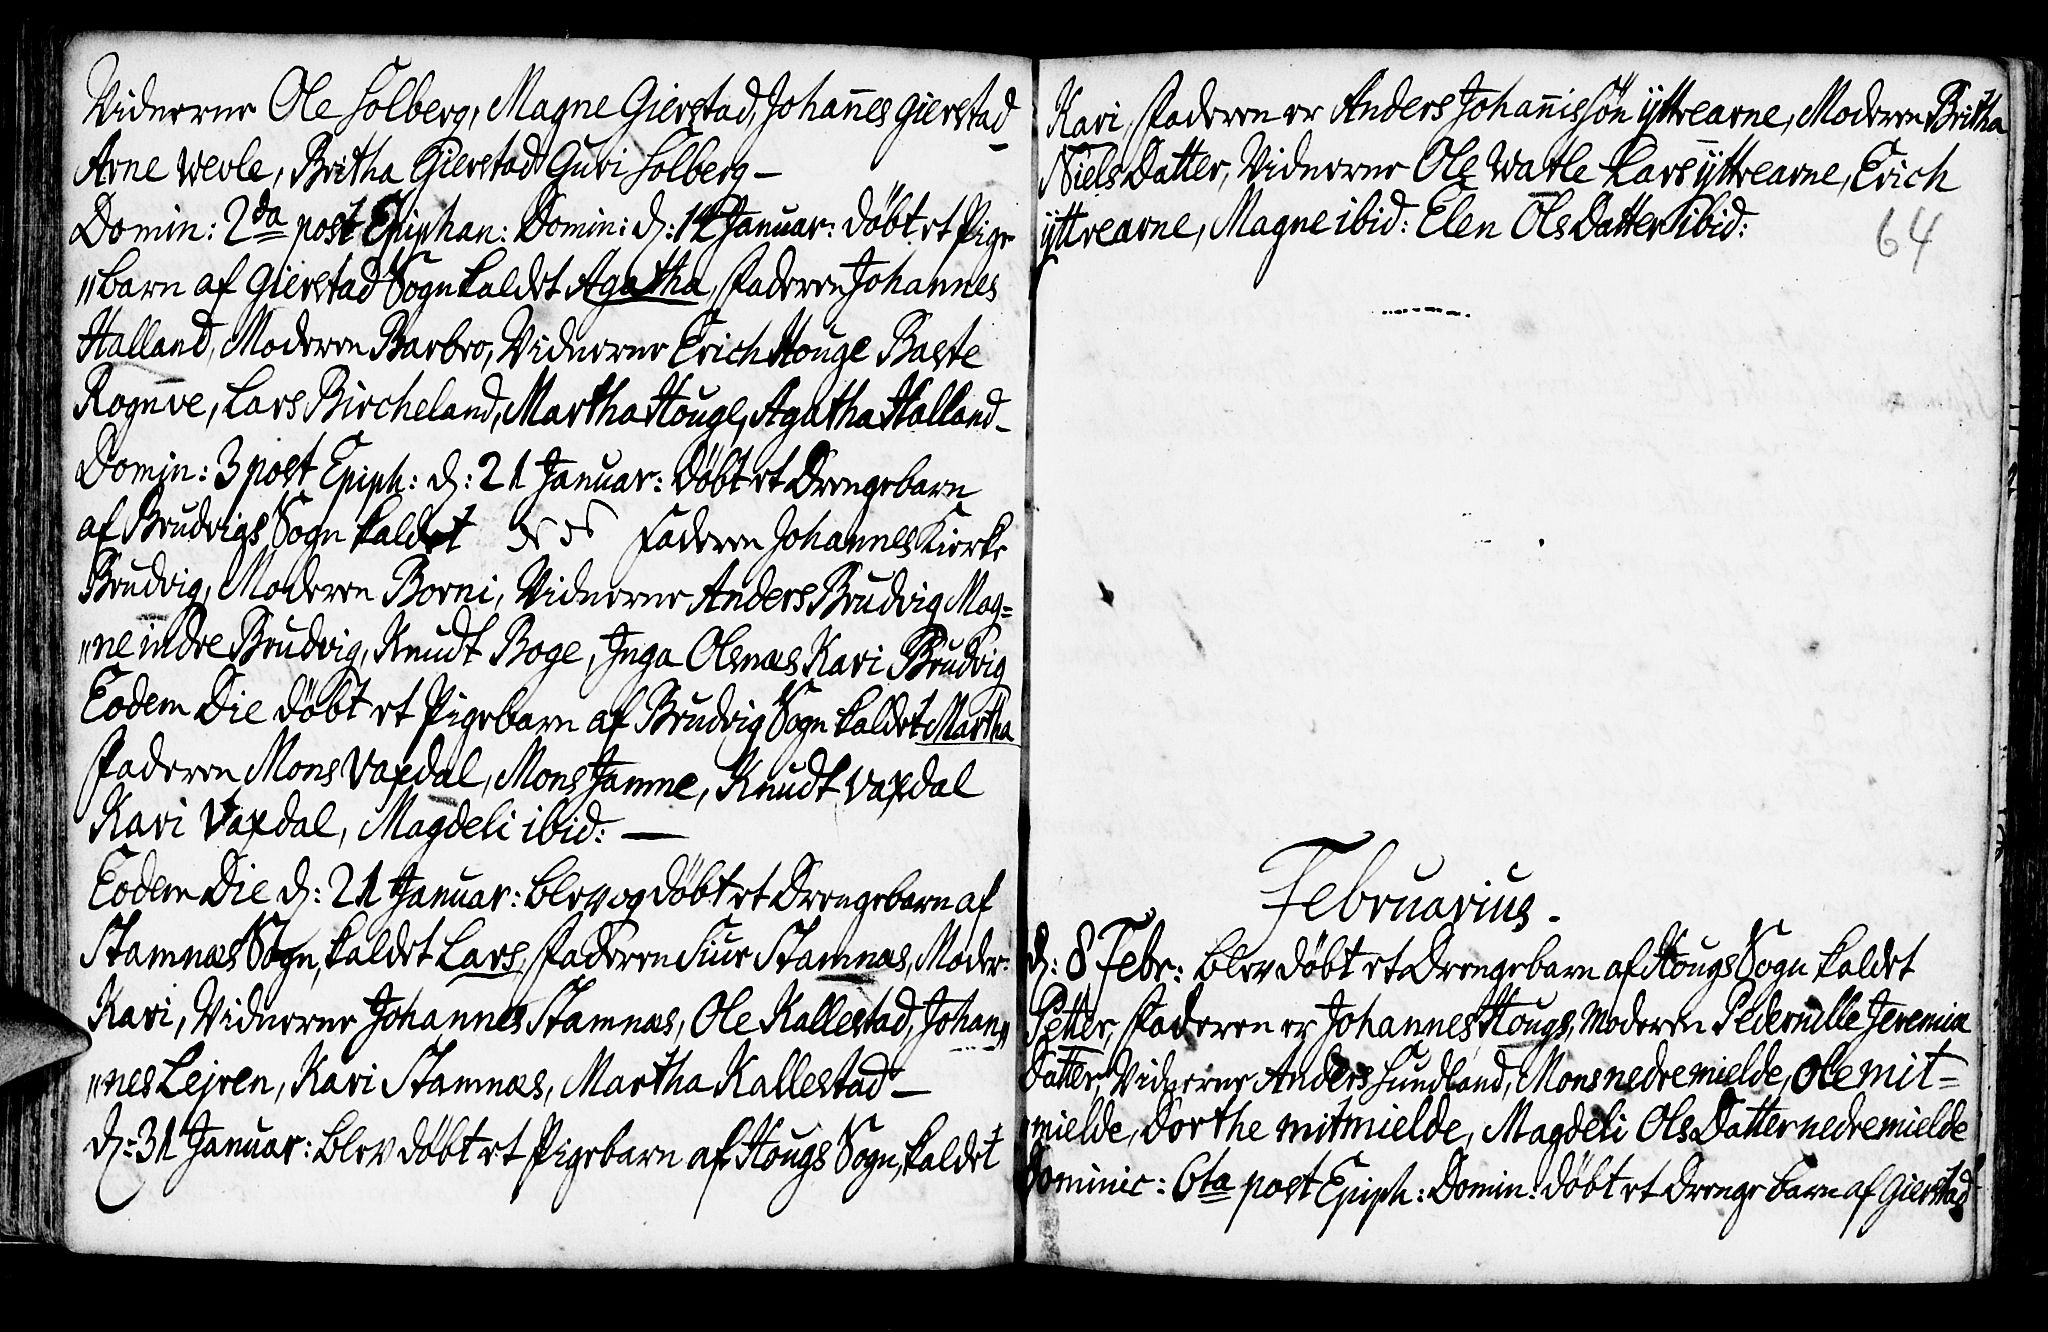 Vidnerne Ole Solberg, Magne Gierstad, Johañes Gierstad
Arne Wevle, Britha Gierstad Guri Solberg –
Domin: 2da post Epiphan: Domin: d: 14 Januar: døbt et Pige
„barn af Gierstad Sogn kaldet Agatha, Faderen Johannes
Halland, Moderen Barbro, Vidnerne Erich Houge Baste
Rognve, Lars Bircheland, Martha Houge, Agatha Halland –
Domin: 3 post Epiph: d: 21 Januar: døbt et Drengebarn
af Brudvigs Sogn kaldet Faderen Johannes Kierke
Brudvig, Moderen Borni, Vidnerne Anders Brudvig Mag=
„ne indre Brudvig, Knudt Boge, Inga Olsnæs Kari Brudvig
Eodem Die døbt et Pigebarn af Brudvig Sogn kaldet Martha
Faderen Mons Vaxdal, Mons Jamne, Knudt Vaxdal
Kari Vaxdal, Magdeli ibid: —
Eodem Die d: 21 Januar: blev og døbt et Drengebarn af
Stamnæs Sogn, kaldet Lars, Faderen Siur Stamnæs, Moder:
Kari, Vidnerne Johannes Stamnæs, Ole Kallestad, Johan„
„nes Lejren, Kari Stamnæs, Martha Kallestad –
d: 31 Januar: blev døbt et Pigebarn af Hougs Sogn, kaldet
Kari, Faderen er Anders Johañissøn ÿttrearne, Moderen Britha
Niels Datter, Vidnerne Ole Watle Lars ÿttrearne, Erich
ÿttrearne, Magne ibid: Elen Ols Datter ibid:
64
Februarius.
d: 8 Febr: blev døbt et Drengebarn af Hougs Sogn kaldet
Petter, Faderen er Johannes Hougs, Moderen Pedernille Jeremiæ
Datter, Vidnerne Anders Sundland, Mons nedremielde, Ole mit=
mielde, Dorthe mitmielde, Magdeli Ols Datter nedremielde
Dominic: 6ta post Epiph: Domin: døbt et Drengebarn af Gierstad